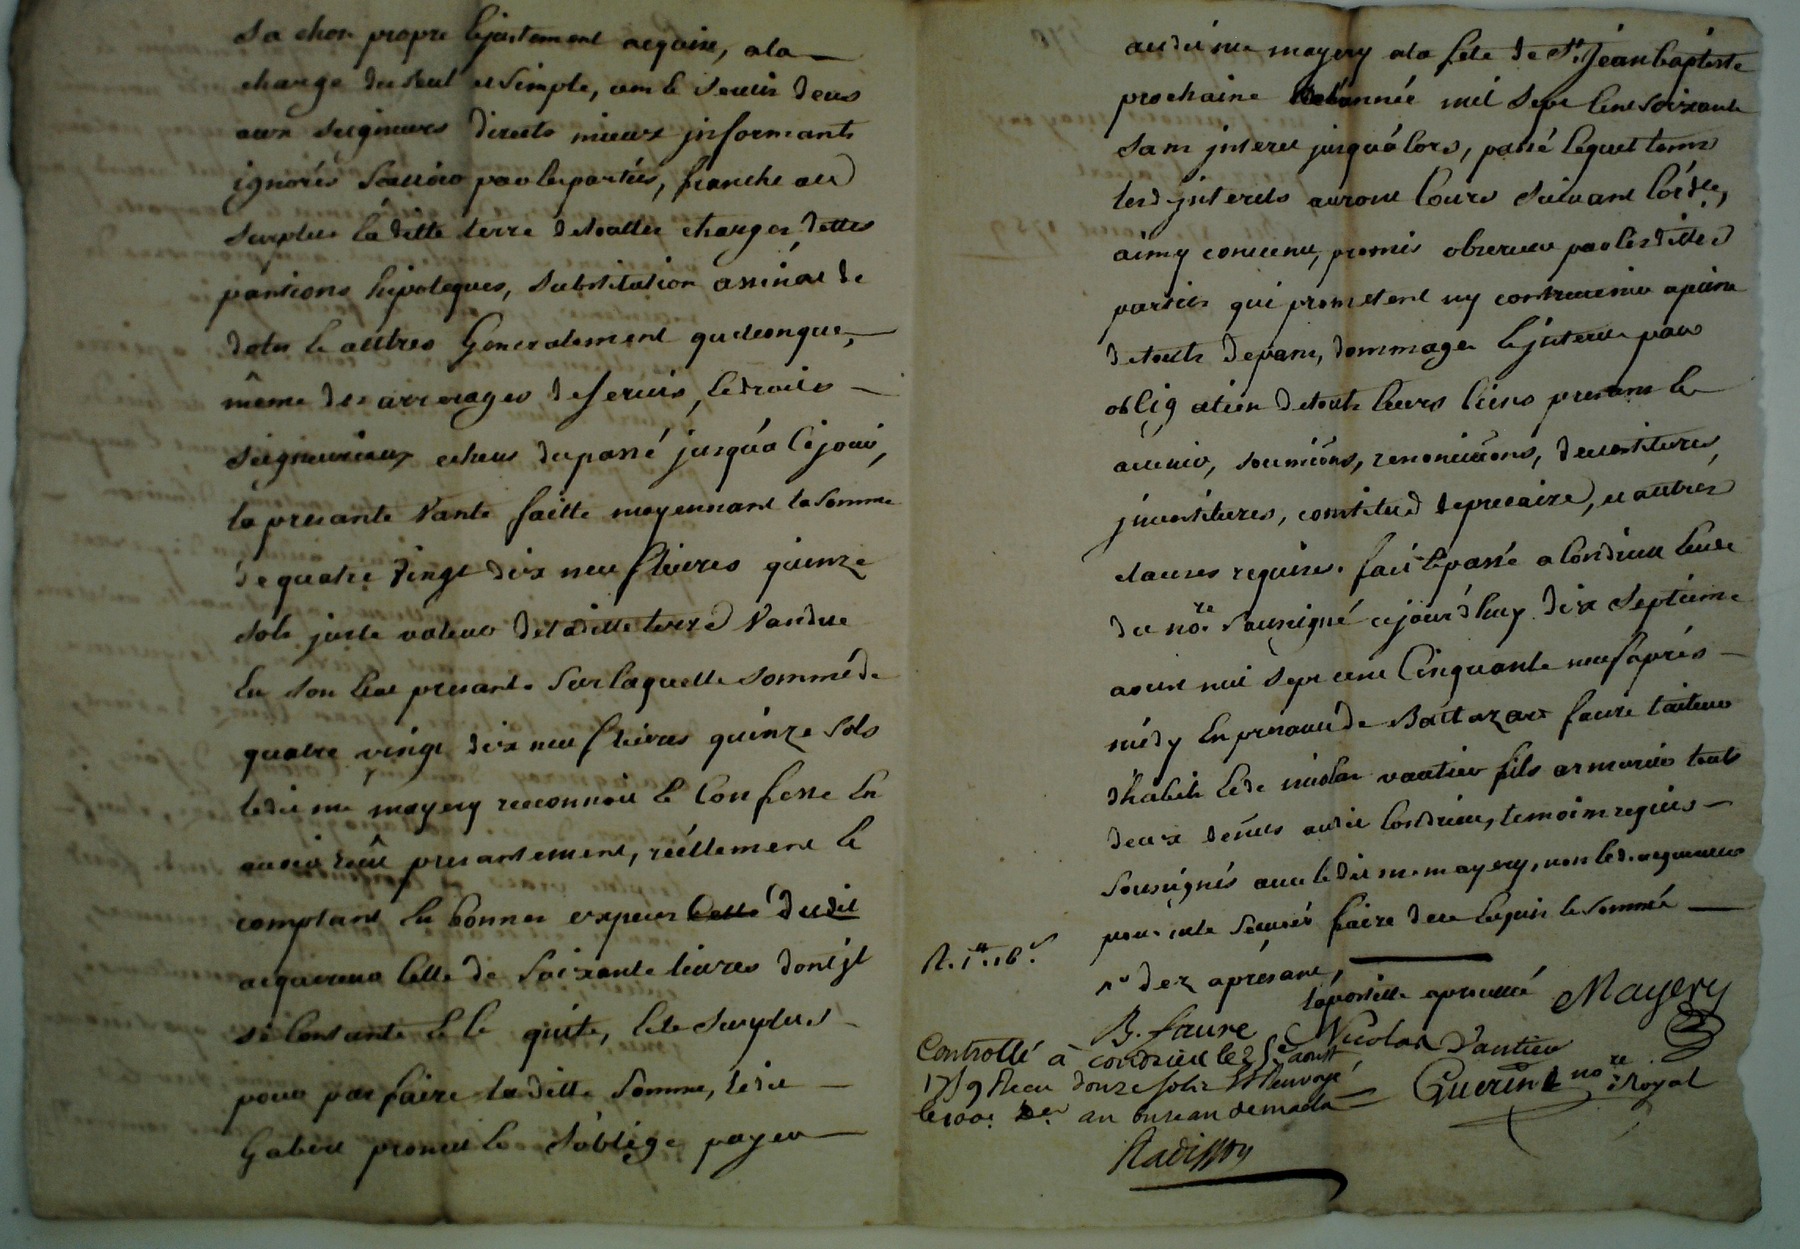 sa chose propre & justement acquise, a la
charge du seul et simple, cens & servis deus
aux seigneurs directs mieux informants
ignorés sauoir par les parties, franche au
surplus laditte terre de toutes charges, dettes
pantions hipoteques, substitution assinat de
dotes & autres Generalement quelconque,
même des arrerages de servis, & droits
seigneuriaux echeus du passé jusqu'a ce jour,
la presante Vante faitte moyennant la somme
de quatre vingt dix neuf livres quinze
sols juste valeur de laditte terre Vandue
En son Etat presant. Sur laquelle somme de
quatre vingt dix neuf livres quinze sols
ledit me mayery reconnoit & Confesse En
auoir reçû presantement, réellement &
comptant En bonnes especes dudit
acquereur Celle de soixante livres dont jl
se Contante & le quite, & le surplus
pour par faire laditte somme, ledit
Gabert promet & s'oblige payer
audit me mayery a la fete de St Jean baptiste
prochaine de l'année mil sept Cent soixante
sans jnteret jusqu'alors, passé lequel tems
lesd jnterets auront Cours suivant l'ord.ce,
ainsy convenu, promis observer par lesdittes
parties qui promettent ny contrevenir a peine
de touts depans, dommages & jnterets par
obligation de touts leurs biens presans &
avenir, soumions, renonciãons, devestitures,
jnvestitures, constitut de precaire, et autres
clauses requises. fait & passé a Condrieu Etude
du nore soussigné cejourd'huy dix septieme
aoust mil sept cent Cinquante neuf après
midy En presance de Baltazar faure tailleur
d'habits & de nicolas vantier fils armurier touts
deux demts audit Condrieu, temoins requis
soussignés avec ledit me mayery, non led. acquereur
pour ne le sauoir faire de ce Enquis & sommé
dez apresant,
l'apostille aprouué Mayery
R. 1tt. 16s.
B. faure Nicolas Vantier
Controllé à condrieu le 25e aoust
1759 Recu douze sols Et Renvoyé
le 100e Der au bureau de mala
Guerin nore Royal
Radisson